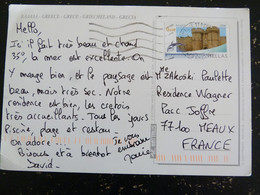 GREECE
Hello,
Ici il fait très beau et chaud
35°, la mer est excellente. On
y mange bien, et le paysage est
beau, mais très sec. Notre
résidence est bien, les crétois
très accueillants. Tous les jours
Piscine, plage et restau.
On adore. Je vous
embrasse
Bisous et à bientôt
David.
HELLAS
Mme Paulette
Residence Wagner
Parc Joffre
77100 MEAUX
FRANCE